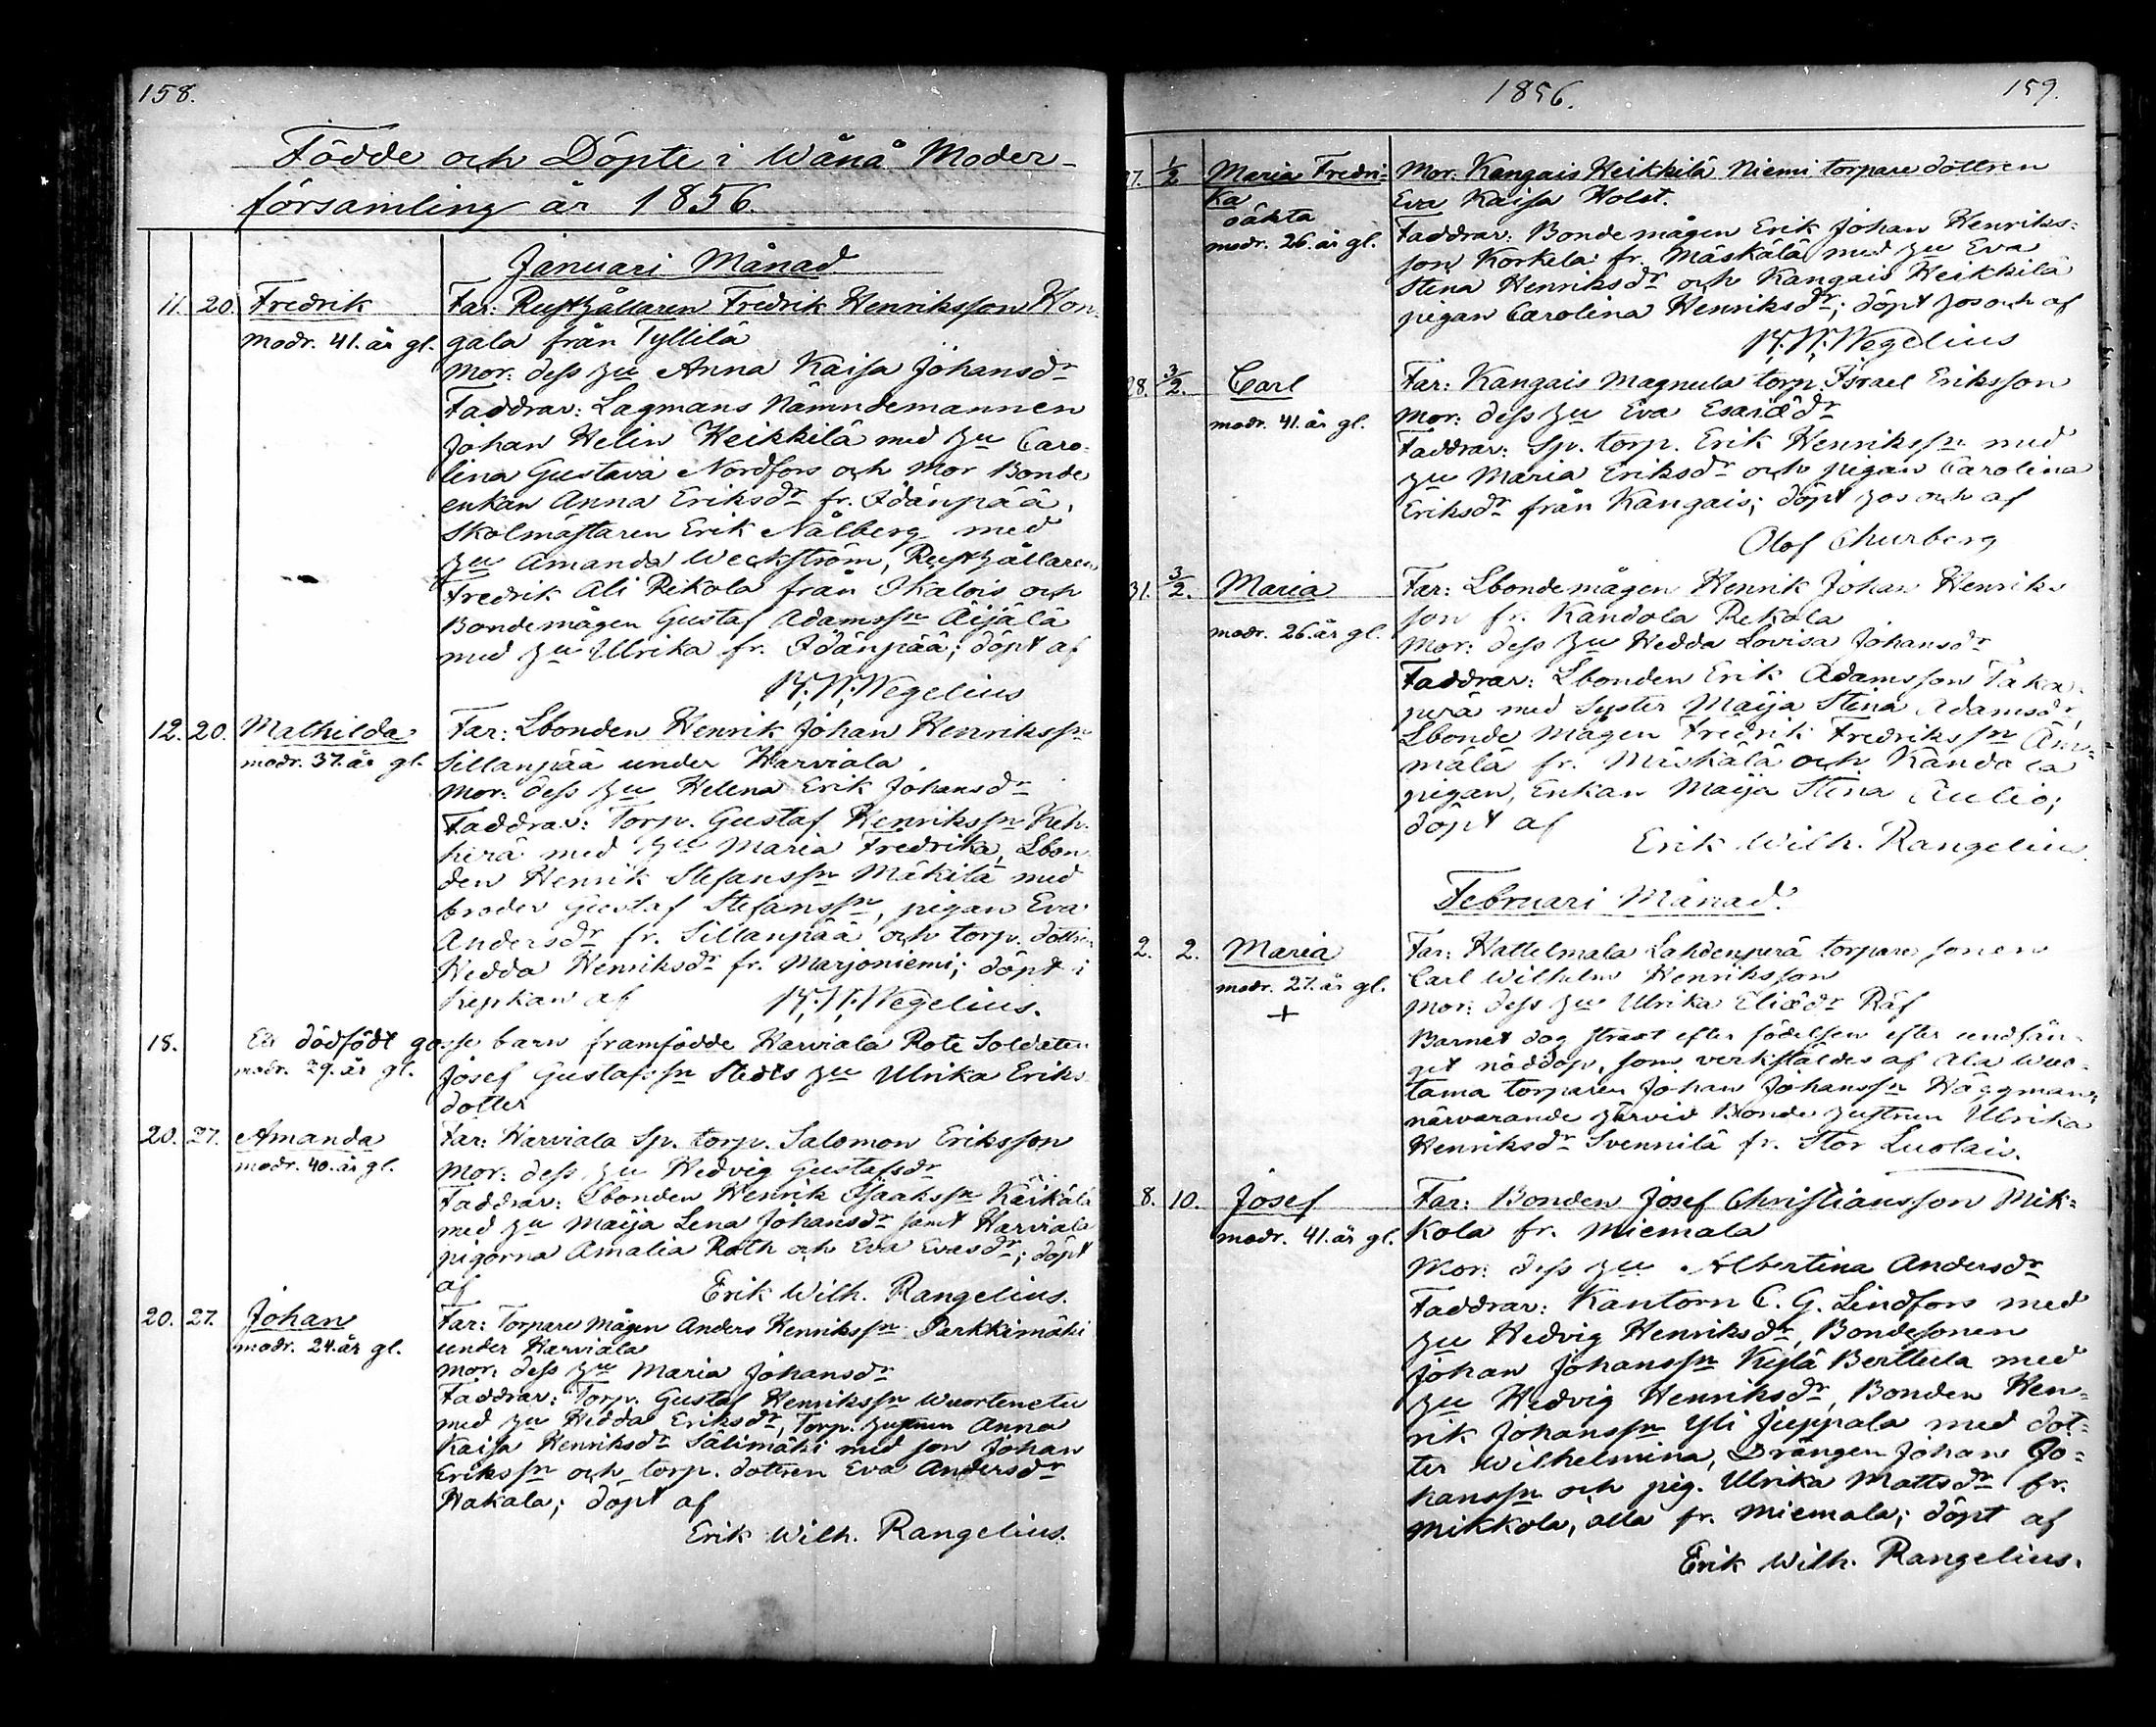 158.
Födde och Döpte i Wånå Moder-
församling år 1856.
Januari Månad
11. 20. Fredrik
modr. 41. år gl.
Far: Rusthållaren Fredrik Henriksson Kon-
gala från Tyllilä
Mor: dess hu Anna Kaisa Johansdr
Faddrar: Lagmans Nämndemannen
Johan Helin Heikkilä med hu Caro-
lina Gustava Nordfors och Mor Bonde
enkan Anna Eriksdr fr. Idänpää,
Skolmästaren Erik Nålberg med
hu Amanda Weckström, Rusthållaren
Fredrik Ali Rekola från Ikalois och
Bondemågen Gustaf Adamssn Äijälä
med hu Ulrika fr. Idänpää; döpt af
K. W. Wegelius
12. 20. Mathilda
modr. 37. år gl.
Far: Lbonden Henrik Johan Henrikssn
Sillanpää under Harviala.
Mor: dess hu Helena Erik Johansdr
Faddrar: Torp. Gustaf Henrikssn Keh-
herä med hu Maria Fredrika, Lbon
den Henrik Stefanssn Mäkilä med
broder Gustaf Stefanssn, pigan Eva
Andersdr fr. Sillanpää och torp. dottren
Hedda Henriksdr fr. Marjoniemi; döpt i
Kyrkan af K. W. Wegelius.
18. Ett dödfödt gosse barn framfödde Harviala Rote Soldaten
modr. 29. år gl. Josef Gustafssn Stedts hu Ulrika Eriks
dotter
20. 27. Amanda
modr. 40. år gl.
Far: Harviala Sp. torp. Salomon Eriksson
Mor: dess hu Hedvig Gustafsdr
Faddrar: Lbonden Henrik Isaakssn Käikälä
med hu Maija Lena Johansdr samt Harviala
pigorna Amalia Roth och Eva Evasdr; döpt
af Erik Wilh. Rangelius.
20. 27. Johan
modr. 24. år gl.
Far: Torpare mågen Anders Henrikssn Parkkimäki
under Harviala
Mor: dess hu Maria Johansdr
Faddrar: Torp. Gustaf Henrikssn Wuortenetu
med hu Hedda Eriksdr, Torp. hustrun Anna
Kaisa Henriksdr Sälimäki med son Johan
Erikssn och torp. dottren Eva Andersdr
Hakala; döpt af
Erik Wilh. Rangelius.
1856. 159.
27. 1/2 Maria Fredri-
ka
oäkta
modr. 26. år gl.
Mor: Kangais Heikkilä Niemi torpare dottren
Eva Kaisa Holst.
Faddrar: Bondemågen Erik Johan Henriks-
son Korkela fr. Mäskälä med hu Eva
Stina Henriksdr och Kangais Heikkilä
pigan Carolina Henriksdr; döpt hos och af
K. W. Wegelius
28. 3/2. Carl
modr. 41. år gl.
Far: Kangais Magnula torp. Israel Eriksson
Mor: dess hu Eva Esaiædr
Faddrar: Sp. torp. Erik Henrikssn med
hu Maria Eriksdr och pigan Carolina
Eriksdr från Kangais; döpt hos och af
Olof Churberg
31. 3/2. Maria
modr. 26. år gl.
Far: Lbondemågen Henrik Johan Henriks
son fr. Kandola Rekola
Mor: dess hu Hedda Lovisa Johansdr
Faddrar: Lbonden Erik Adamsson Taka-
perä med Syster Maija Stina Adamsdr,
Lbonde mågen Fredrik Fredrikssn Äm-
mälä fr. Mäskälä och Kandola
pigan, Enkan Maija Stina Aulio;
döpt af
Erik Wilh. Rangelius.
Februari Månad.
2. 2. Maria
modr. 27. år gl.
+
Far: Hattelmala Lahdenperä torpare sonen
Carl Wilhelm Henriksson
Mor: dess hu Ulrika Eliædr Räf
Barnet dog strax efter födelsen efter undfån-
get nöddop, som verkställdes af Ala Wuo-
tama torparen Johan Johanssn Häggman,
närvarande härvid Bonde hustrun Ulrika
Henriksdr Svennilä fr. Stor Luolais.
8. 10. Josef
modr. 41. år gl.
Far: Bonden Josef Christiansson Mik-
kola fr. Miemala
Mor: dess hu Albertina Andersdr
Faddrar: Kantorn C. G. Lindfors med
hu Hedvig Henriksdr, Bondesonen
Johan Johanssn Kylä Berttula med
hu Hedvig Henriksdr, Bonden Hen-
rik Johanssn Yli Juppala med dot-
ter Wilhelmina, Drängen Johan Jo-
hanssn och pig. Ulrika Mattsdr fr.
Mikkola, alla fr. Miemala; döpt af
Erik Wilh. Rangelius.